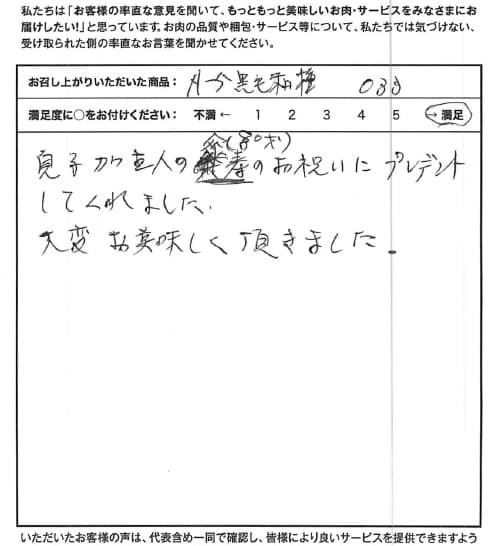 私たちは「お客様の率直な意見を聞いて、もっともっと美味しいお肉・サービスをみなさまにお
届けしたい!」と思っています。お肉の品質や梱包・サービス等について、私たちでは気づけない、
受け取られた側の率直なお言葉を聞かせてください。
お召し上がりいただいた商品: 黒毛和種
満足度に○をお付けください: 不満 ← 1 2 3 4 5 → 満足
傘(80才)
息子から主人の寿のお祝いにプレデント
してくれました.
大変お美味しく頂きました.
いただいたお客様の声は、代表含め一同で確認し、皆様により良いサービスを提供できますよう